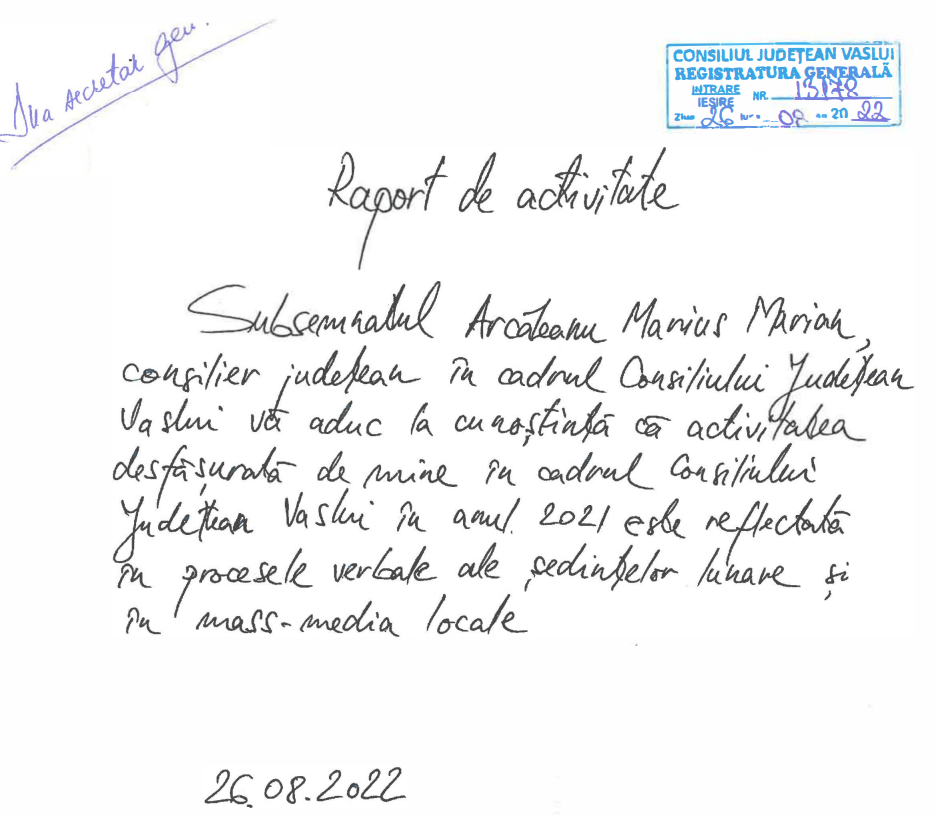 Dna secretar gen.
CONSILIUL JUDEȚEAN VASLUI
REGISTRATURA GENERALĂ
INTRARE
IEȘIRE
NR. 13178
Ziua 26 luna 08 20 22
Raport de activitate
Subsemnatul Arcăleanu Marius Marian,
consilier județean în cadrul Consiliului Județean
Vaslui vă aduc la cunoștință că activitatea
desfășurată de mine în cadrul Consiliului
Județean Vaslui în anul 2021 este reflectată
în procesele verbale ale ședințelor lunare și
în mass-media locale
26.08.2022